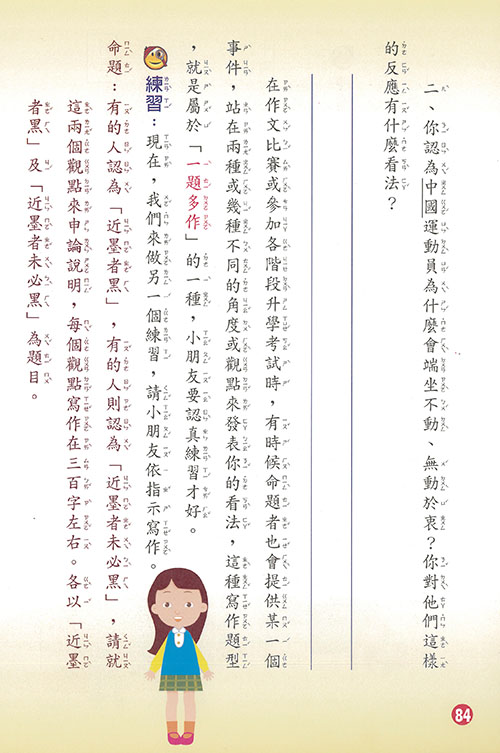 二、你認為中國運動員為什麼會端坐不動、無動於衷？你對他們這樣
的反應有什麼看法？
在作文比賽或參加各階段升學考試時，有時候命題者也會提供某一個
事件，站在兩種或幾種不同的角度或觀點來發表你的看法，這種寫作題型
，就是屬於「一題多作」的一種，小朋友要認真練習才好。
練習：現在，我們來做另一個練習，請小朋友依指示寫作。
命題：有的人認為「近墨者黑」，有的人則認為「近墨者未必黑」，請就
這兩個觀點來申論說明，每個觀點寫作在三百字左右。各以「近墨
者黑」及「近墨者未必黑」為題目。
84